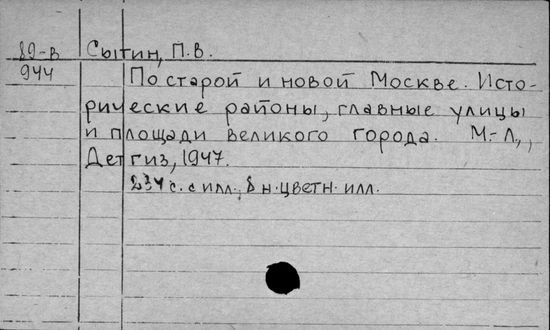 89-в Сытин, П.В.
944 По старой и новой Москве. Исто-
рические районы, главные улицы
и площади великого города. М.-Л.,
Детгиз, 1947.
234 с. с илл., 8 н. цветн. илл.